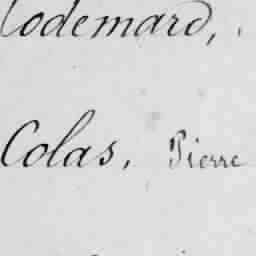 lodemard,
Colas, Pierre